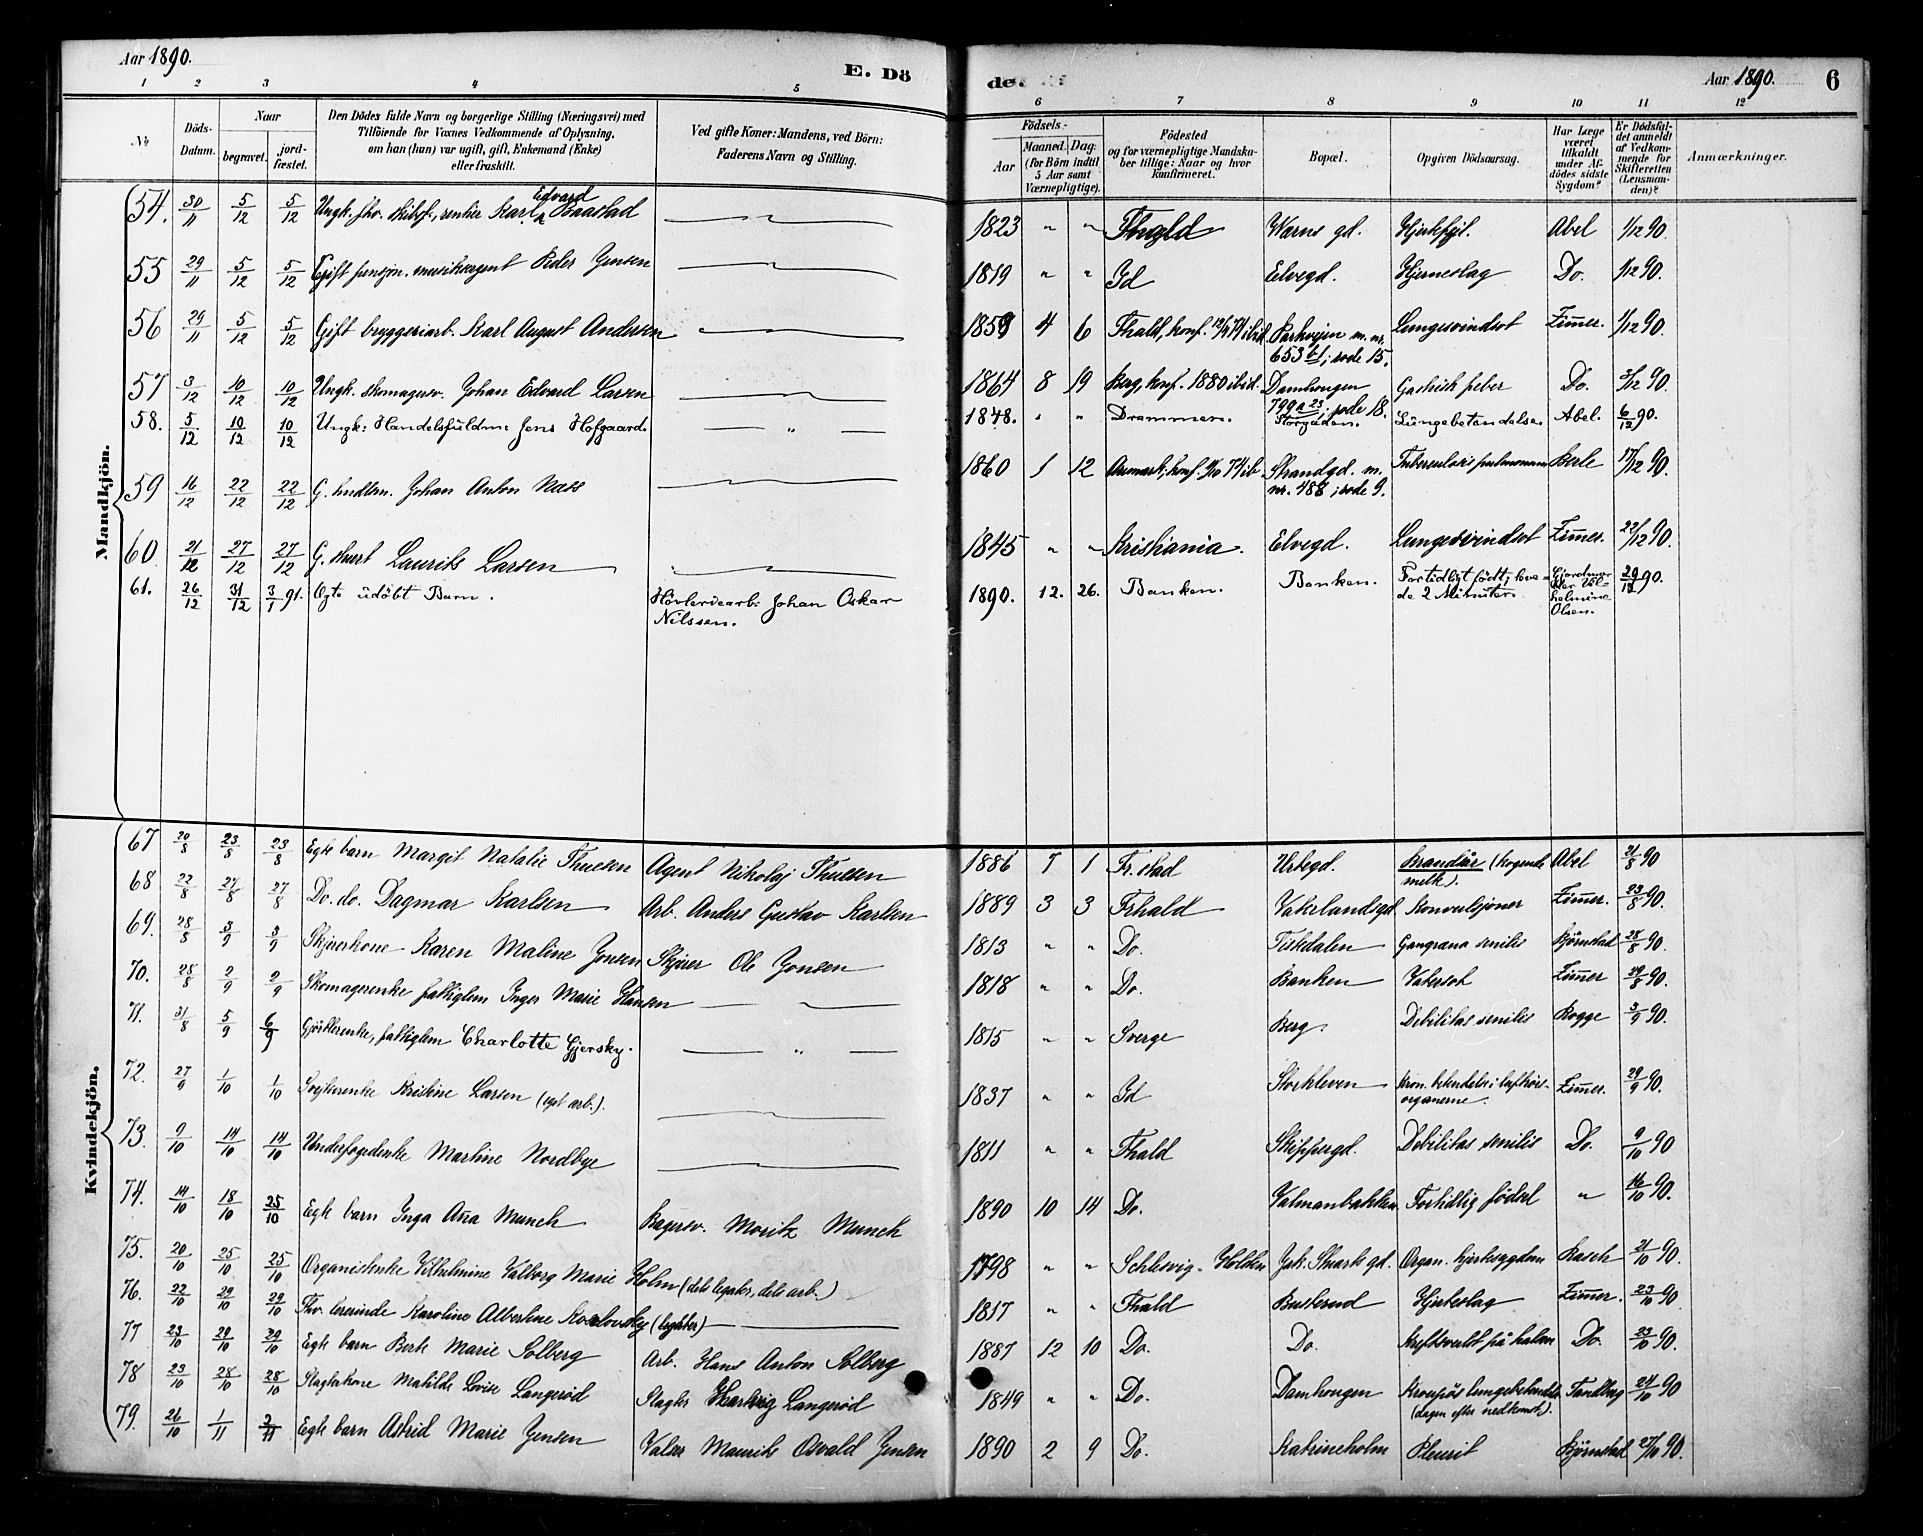 Aar 1890.
E. Dö
de.
Aar 1890.
6
1 2 3 4 5 6 7 8 9 10 11 12
Nr.
Döds-Datum.
Naar
begravet.
jord-fæstet.
Den Dödes fulde Navn og borgerlige Stilling (Næringsvei) med
Tilföiende for Voxnes Vedkommende af Oplysning,
om han (hun) var ugift, gift, Enkemand (Enke)
eller fraskilt.
Ved gifte Koner: Mandens, ved Börn:
Faderens Navn og Stilling.
Födsels-
Aar
Maaned. Dag:
(for Börn indtil
5 Aar samt
Værnepligtige).
Födested
og for værnepligtige Mandska-
ber tillige: Naar og hvor
konfirmeret.
Bopæl.
Opgiven Dödsaarsag.
Har Læge
været
tilkaldt
under Af-
dödes sidste
Sygdom?
Er Dödsfal-
det anmeldt
af Vedkom-
mende for
Skifteretten
(Lensman-
den)?
Anmærkninger.
Mandkjön.
54. 30/11 5/12 5/12 Ungk. fhv. skibsf., rentier Karl Edvard Baastad 1823 " " Fhald Warns gd. Hjertefejl. Abel 1/12 90.
55 29/11 5/12 5/12 Gift pensjon. musiksergent Peder Jensen 1819 " " Id Elvegd. Hjerneslag Do. 1/12 90.
56 29/11 5/12 5/12 Gift bryggeriarb. Karl August Andersen 1859 4 6 Fhald, konf. ibid. Parkvejen m. nr. Lungesvindsot Zimer. 1/12 90.
653 b1; rode 15.
57 3/12 10/12 10/12 Ungk. skomagersv. Johan Edvard Larsen 1864 8 19 Berg, konf. 1880 ibid. Damhougen Gastrisk feber Do. 3/12 90.
799 a 23; rode 18.
58. 5/12 10/12 10/12 Ungk: Handelsfuldm: Jens Hofgaard. " 1848. " " Drammen. Storgaden. Lungebetændelse. Abel. 6/12 90.
59 16/12 22/12 22/12 G. hndlm. Johan Anton Næss 1860 1 12 Aremark, konf. ib. Strandgd. m. Tuberculosis pulmonum Berle 17/12 90.
nr. 488; rode 9.
60. 21/12 27/12 27/12 G. murer Laurits Larsen 1845 " " Kristiania. Elvegd. Lungesvindsot Zimer. 22/12 90.
61. 26/12 31/12 3/1 91. Egte udöbt Barn. Hövleriearb: Johan Oskar Nilssen. 1890. 12. 26. Banken. Banken. Fortidligt född; leve-
de 2 Minuter. Gjordmo-
der Vil-
helmine
Olsen. 29/12 90.
Kvindekjön.
67 20/8 23/8 23/8 Egte barn Margit Natalie Thuesen Agent Nikolaj Thuesen 1886 7 1 Fr.stad Urbgd. Brandsår (kogende Abel 21/8 90
melk).
68 22/8 27/8 27/8 Do. do. Dagmar Karlsen Arb. Anders Gustav Karlsen 1889 3 3 Frhald Vaterlandsgd. Konvulsjoner Zimer. 23/8 90.
69. 28/8 3/9 3/9 Skjærerkone Karen Maline Jonsen Skjærer Ole Jonsen 1813 " " Do. Tistedalen Gangræna senilis Björnstad 28/8 90.
70. 28/8 2/9 2/9 Skomagerenke, fattiglem Inger Marie Hansen 1818 " " Do. Banken Vatersot Zimer 29/8 90.
71. 31/8 5/9 6/9 Gjörtlerenke, fattiglem Charlotte Gjersky. " 1815 " " Sverge Berg. Debilitas senilis Rogge 3/9 90.
72. 27/9 1/10 1/10 Svejserenke Kristine Larsen (eget arb.). 1837 " " Id Storkleven Kron. betændelse i luftrørs- Zimer. 29/9 90.
organerne.
73. 9/10 14/10 14/10 Underfogedenke Martine Nordbye 1811 " " Fhald Skippergd. Debilitas senilis Do. 9/10 90
74. 14/10 18/10 25/10 Egte barn Inga Aña Munch Bagersv. Moritz Munch 1890 10 14 Do. Valmanbakken Fortidlig födsel " 16/10 90.
75. 20/10 25/10 25/10 Organistenke Vilhelmine Valborg Marie Holm (dels legater, dels arb.) 1798 " " Schlesvig-Holsten Jak. Stuarts gd. Organ. hjertesygdom Rasch 21/10 90.
76. 22/10 29/10 29/10 Fhv. lererinde Karoline Albertine Koslovsky (legater) 1817 " " Fhald Busterud Hjerteslag Zimer. 23/10 90
77 23/10 29/10 29/10 Egte barn Berte Marie Solberg Arb. Hans Anton Solberg 1887 12 10 Do. Do. Kreftsvulst på halsen Do. 23/10 90.
78 23/10 28/10 28/10 Slagterkone Matilde Lovise Langerød Slagter Hartvig Langerød 1849 " " Do. Damhougen Kroupøs lungebetændelse Tandberg 24/10 90
(dagen efter nedkomst).
79. 26/10 1/11 2/11 Egte barn Astrid Marie Jensen Valser Maurits Osvald Jensen 1890 2 9 Do. Katrineholm Pleurit Björnstad 27/10 90.